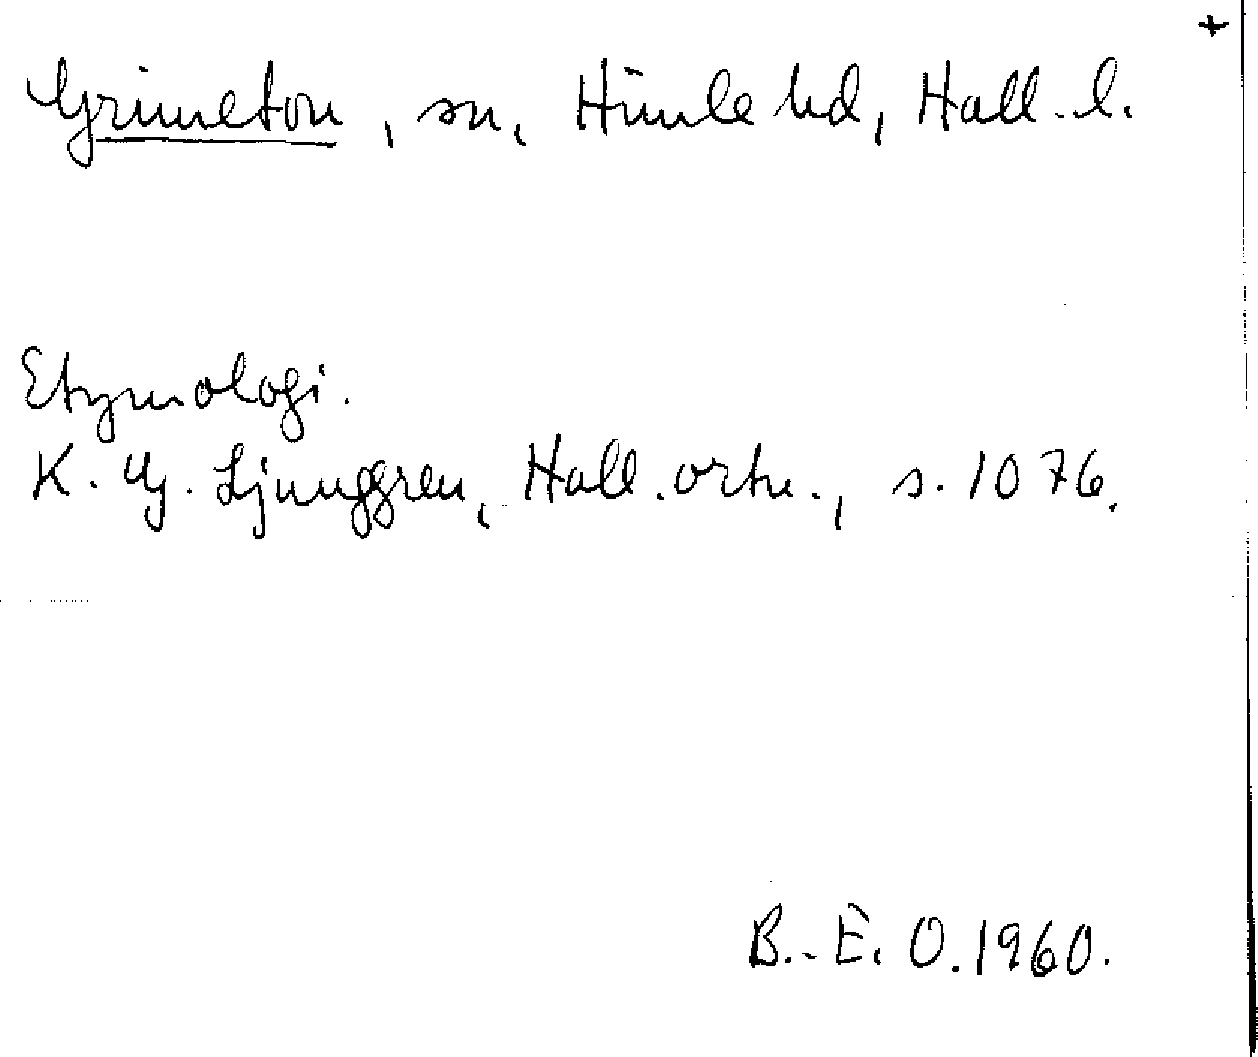 +
Grimeton, sn, Himle hd, Hall. l.
Etymologi.
K. G. Ljunggren, Hall. ortn., s. 1076.
B.-E. O. 1960.